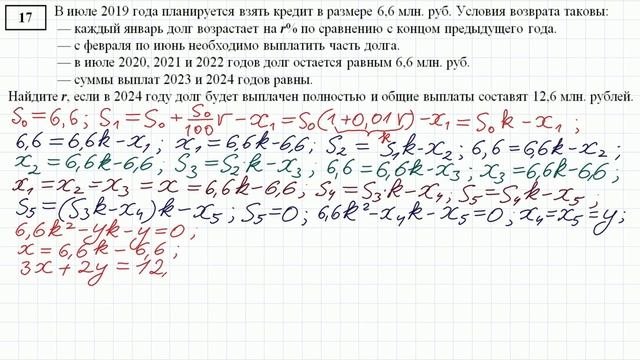 17
В июле 2019 года планируется взять кредит в размере 6,6 млн. руб. Условия возврата таковы:
— каждый январь долг возрастает на r% по сравнению с концом предыдущего года.
— с февраля по июнь необходимо выплатить часть долга.
— в июле 2020, 2021 и 2022 годов долг остается равным 6,6 млн. руб.
— суммы выплат 2023 и 2024 годов равны.
Найдите r, если в 2024 году долг будет выплачен полностью и общие выплаты составят 12,6 млн. рублей.
S₀=6,6; S₁=S₀+S₀/100 r-x₁=S₀(1+0,01r)-x₁=S₀k-x₁;
k
6,6=6,6k-x₁; x₁=6,6k-6,6; S₂=S₁k-x₂; 6,6=6,6k-x₂;
x₂=6,6k-6,6; S₃=S₂k-x₃; 6,6=6,6k-x₃; x₃=6,6k-6,6;
x₁=x₂=x₃=x=6,6k-6,6; S₄=S₃k-x₄; S₅=S₄k-x₅;
S₅=(S₃k-x₄)k-x₅; S₅=0; 6,6k²-x₄k-x₅=0; x₄=x₅=y;
6,6k²-yk-y=0;
x=6,6k-6,6;
3x+2y=12,